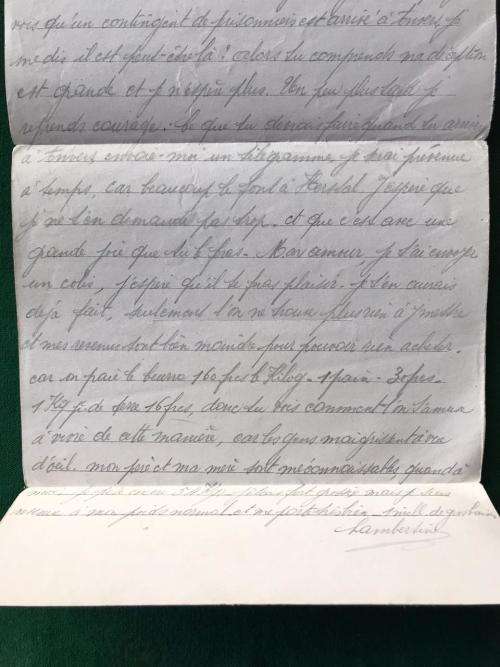 vois qu'un contingent de prisonniers est arrivé à Anvers je
me dis il est peut-être là ! alors tu comprends ma déception
est grande et je n'espère plus. Un peu plus tard je
reprends courage. Ce que tu devrais faire quand tu arrives
à Anvers envoie-moi un télégramme je serai prévenue
à temps, car beaucoup le font à Herstal J'espère que
je ne t'en demande pas trop. et que c'est avec une
grande joie que tu le feras. Mon amour je t'ai envoyé
un colis, j'espère qu'il te fera plaisir. je t'en aurais
déjà fait, seulement l'on ne trouve plus rien à y mettre
et mes revenus sont bien moindre pour pouvoir rien acheter.
car on paie le beurre 160 frcs le Kilog. 1 pain - 30 frcs.
1 Kg p. de terre 16 frcs, donc tu vois comment l'on
à vivre de cette manière, car les gens maigrissent à vue
d'œil. mon père et ma mère sont méconnaissables quand à
moi je
à mon poids normal et me porte très bien. mille
Lambertine